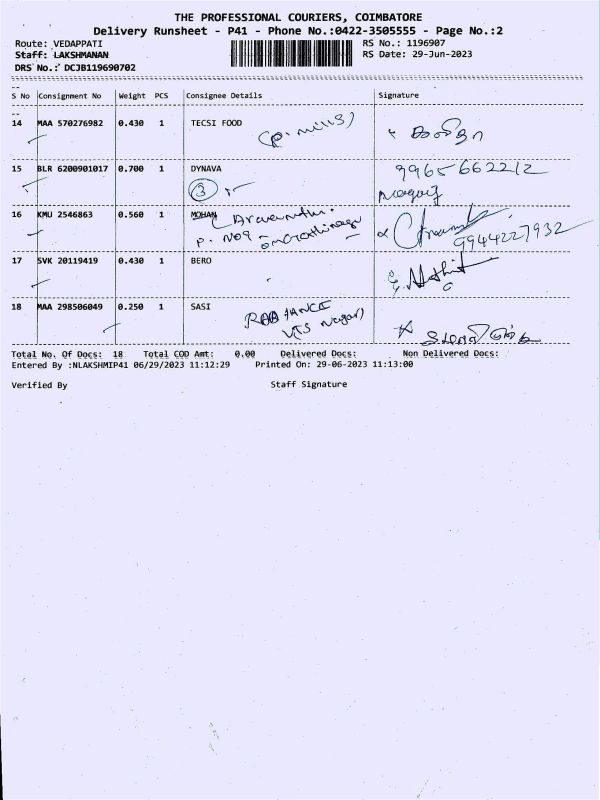 THE PROFESSIONAL COURIERS, COIMBATORE
Delivery Runsheet - P41 - Phone No.:0422-3505555 - Page No.:2
Route: VEDAPPATI RS No.: 1196907
Staff: LAKSHMANAN RS Date: 29-Jun-2023
DRS No.: DCJB119690702
S No Consignment No Weight PCS Consignee Details Signature
14 MAA 570276982 0.430 1 TECSI FOOD
(P. mills)
15 BLR 6200901017 0.700 1 DYNAVA 9965662212
3
16 KMU 2546863 0.560 1 MOHAN
P. No9 9944227932
17 SVK 20119419 0.430 1 BERO
18 MAA 298506049 0.250 1 SASI
VTS Nagar
Total No. Of Docs: 18 Total COD Amt: 0.00 Delivered Docs: Non Delivered Docs:
Entered By :NLAKSHMIP41 06/29/2023 11:12:29 Printed On: 29-06-2023 11:13:00
Verified By Staff Signature